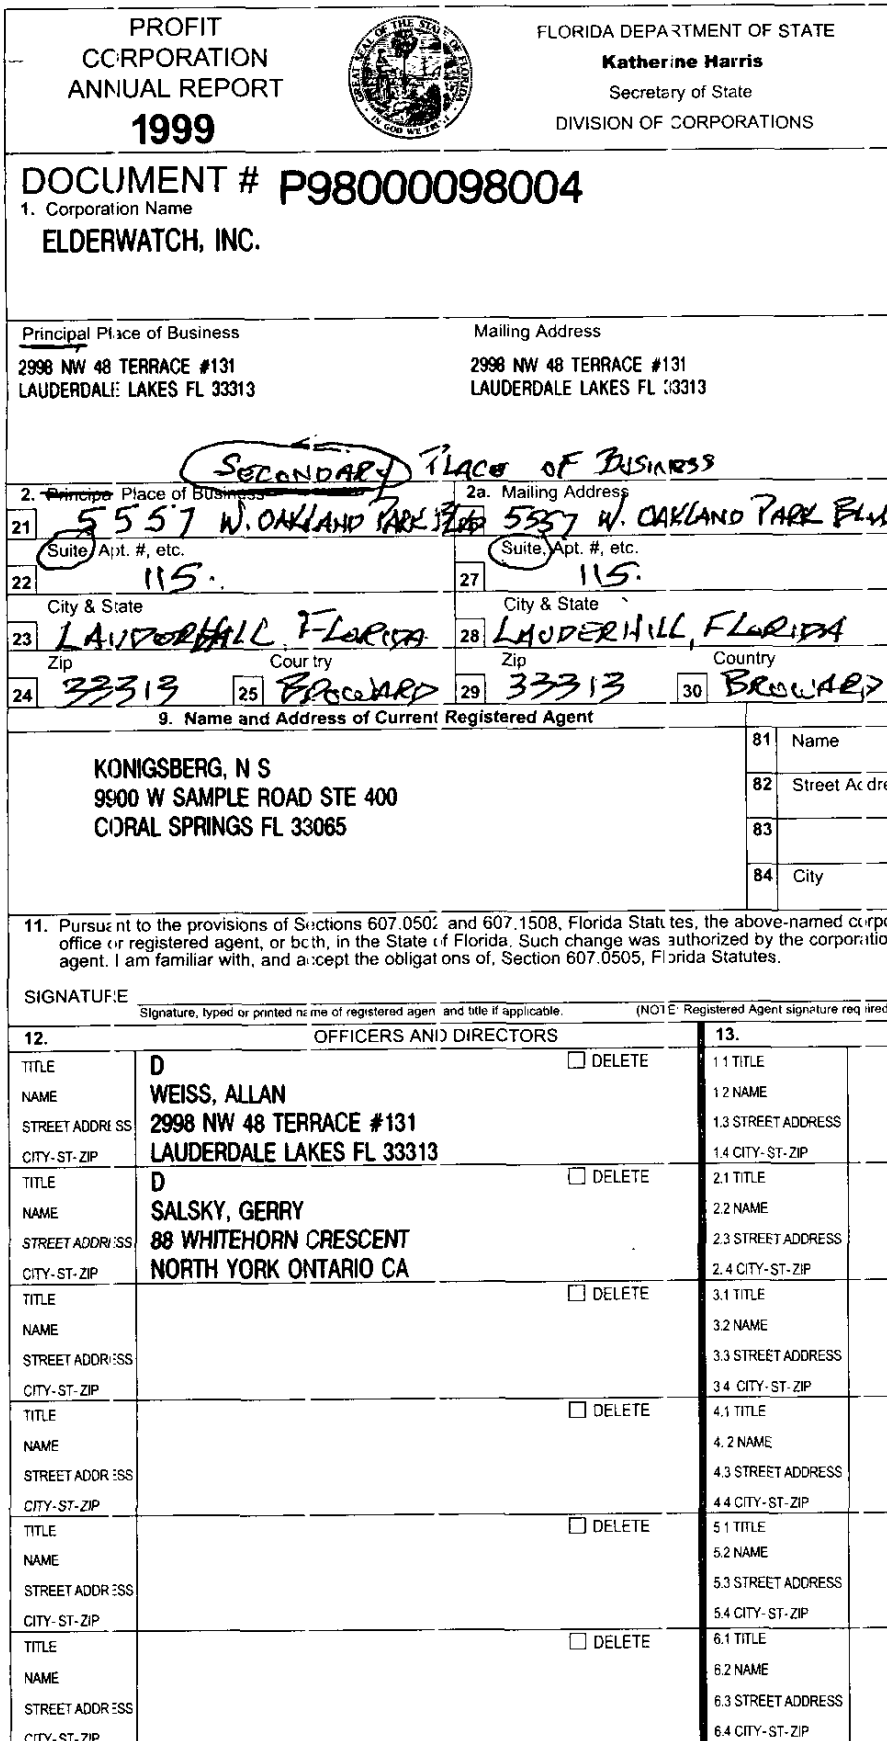 PROFIT
CORPORATION
ANNUAL REPORT
1999
GREAT SEAL OF THE STATE OF FLORIDA
IN GOD WE TRUST
FLORIDA DEPARTMENT OF STATE
Katherine Harris
Secretary of State
DIVISION OF CORPORATIONS
DOCUMENT # P98000098004
1. Corporation Name
ELDERWATCH, INC.
Principal Place of Business
2998 NW 48 TERRACE #131
LAUDERDALE LAKES FL 33313
Mailing Address
2998 NW 48 TERRACE #131
LAUDERDALE LAKES FL 33313
SECONDARY PLACE OF BUSINESS
2. Principa Place of Business
2a. Mailing Address
21 5557 W. OAKLAND PARK BLVD
5557 W. OAKLAND PARK BLVD
Suite, Apt. #, etc.
Suite, Apt. #, etc.
22 115.
27 115.
City & State
City & State
23 LAUDERHILL, FLORIDA
28 LAUDERHILL, FLORIDA
Zip
Country
Zip
Country
24 33313
25 BROWARD
29 33313
30 BROWARD
9. Name and Address of Current Registered Agent
KONIGSBERG, N S
9900 W SAMPLE ROAD STE 400
CORAL SPRINGS FL 33065
81 Name
82 Street Addre
83
84 City
11. Pursuant to the provisions of Sections 607.0502 and 607.1508, Florida Statutes, the above-named corpo
office or registered agent, or both, in the State of Florida. Such change was authorized by the corporatio
agent. I am familiar with, and accept the obligations of, Section 607.0505, Florida Statutes.
SIGNATURE
Signature, typed or printed name of registered agent and title if applicable.
(NOTE: Registered Agent signature required
12. OFFICERS AND DIRECTORS
13.
TITLE D DELETE
NAME WEISS, ALLAN
STREET ADDRESS 2998 NW 48 TERRACE #131
CITY-ST-ZIP LAUDERDALE LAKES FL 33313
1.1 TITLE
1.2 NAME
1.3 STREET ADDRESS
1.4 CITY-ST-ZIP
TITLE D DELETE
NAME SALSKY, GERRY
STREET ADDRESS 88 WHITEHORN CRESCENT
CITY-ST-ZIP NORTH YORK ONTARIO CA
2.1 TITLE
2.2 NAME
2.3 STREET ADDRESS
2.4 CITY-ST-ZIP
TITLE DELETE
NAME
STREET ADDRESS
CITY-ST-ZIP
3.1 TITLE
3.2 NAME
3.3 STREET ADDRESS
3.4 CITY-ST-ZIP
TITLE DELETE
NAME
STREET ADDRESS
CITY-ST-ZIP
4.1 TITLE
4.2 NAME
4.3 STREET ADDRESS
4.4 CITY-ST-ZIP
TITLE DELETE
NAME
STREET ADDRESS
CITY-ST-ZIP
5.1 TITLE
5.2 NAME
5.3 STREET ADDRESS
5.4 CITY-ST-ZIP
TITLE DELETE
NAME
STREET ADDRESS
CITY-ST-ZIP
6.1 TITLE
6.2 NAME
6.3 STREET ADDRESS
6.4 CITY-ST-ZIP